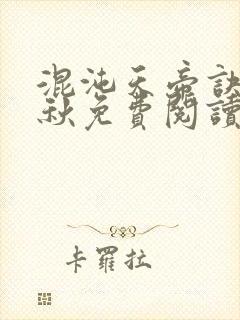 混沌天帝訣
秋免費閱讀
卡羅拉